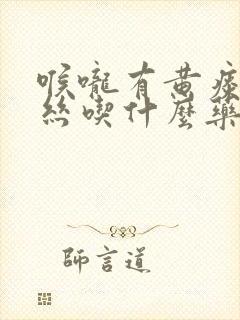 喉嚨有黃痰
絲喫什麼藥
師言道